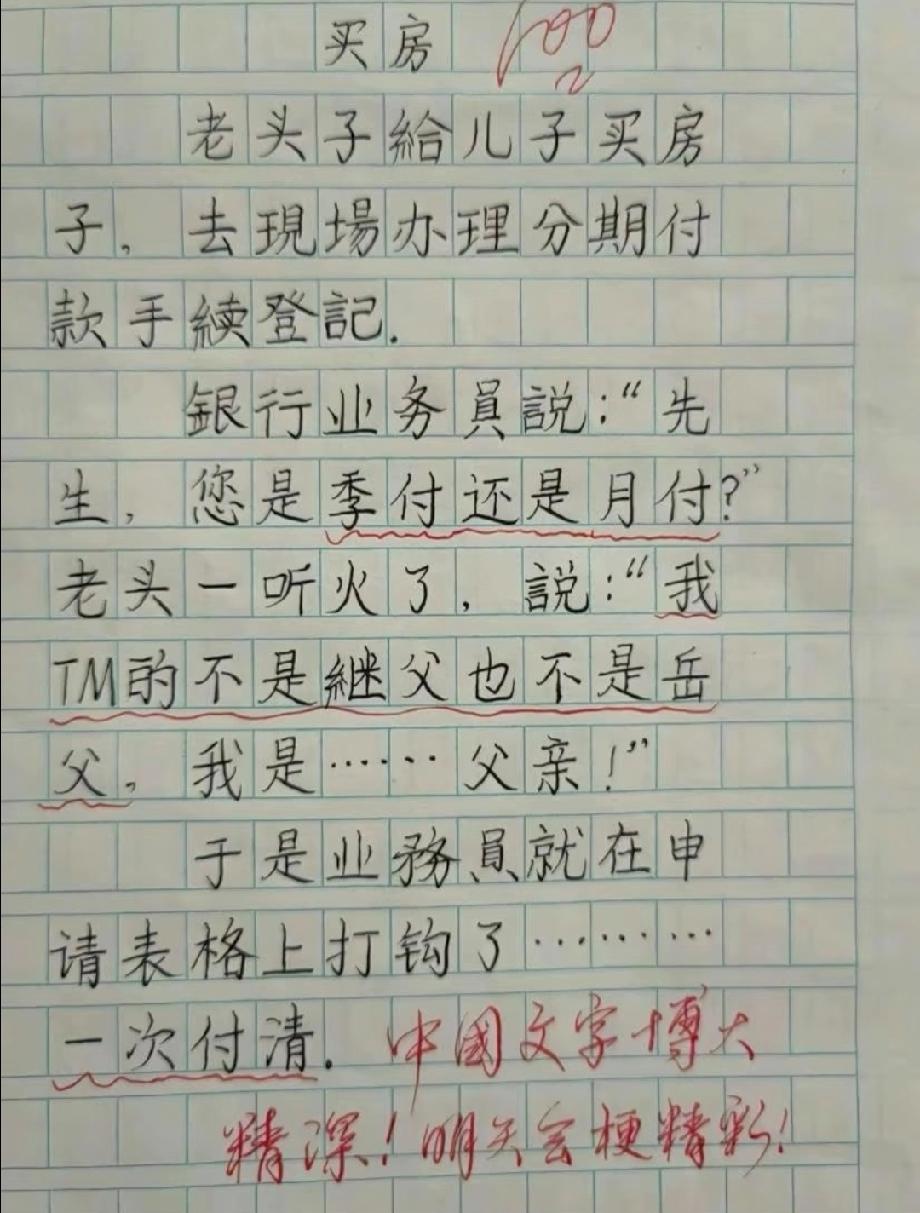 买房 100
老头子給儿子买房
子，去現場办理分期付
款手続登記.
銀行业务員説:“先
生，您是季付还是月付?”
老头一听火了，説:“我
TM的不是継父也不是岳
父，我是……父亲!”
于是业務員就在申
请表格上打钩了………
一次付清. 中國文字博大
精深!明天会梗精彩!